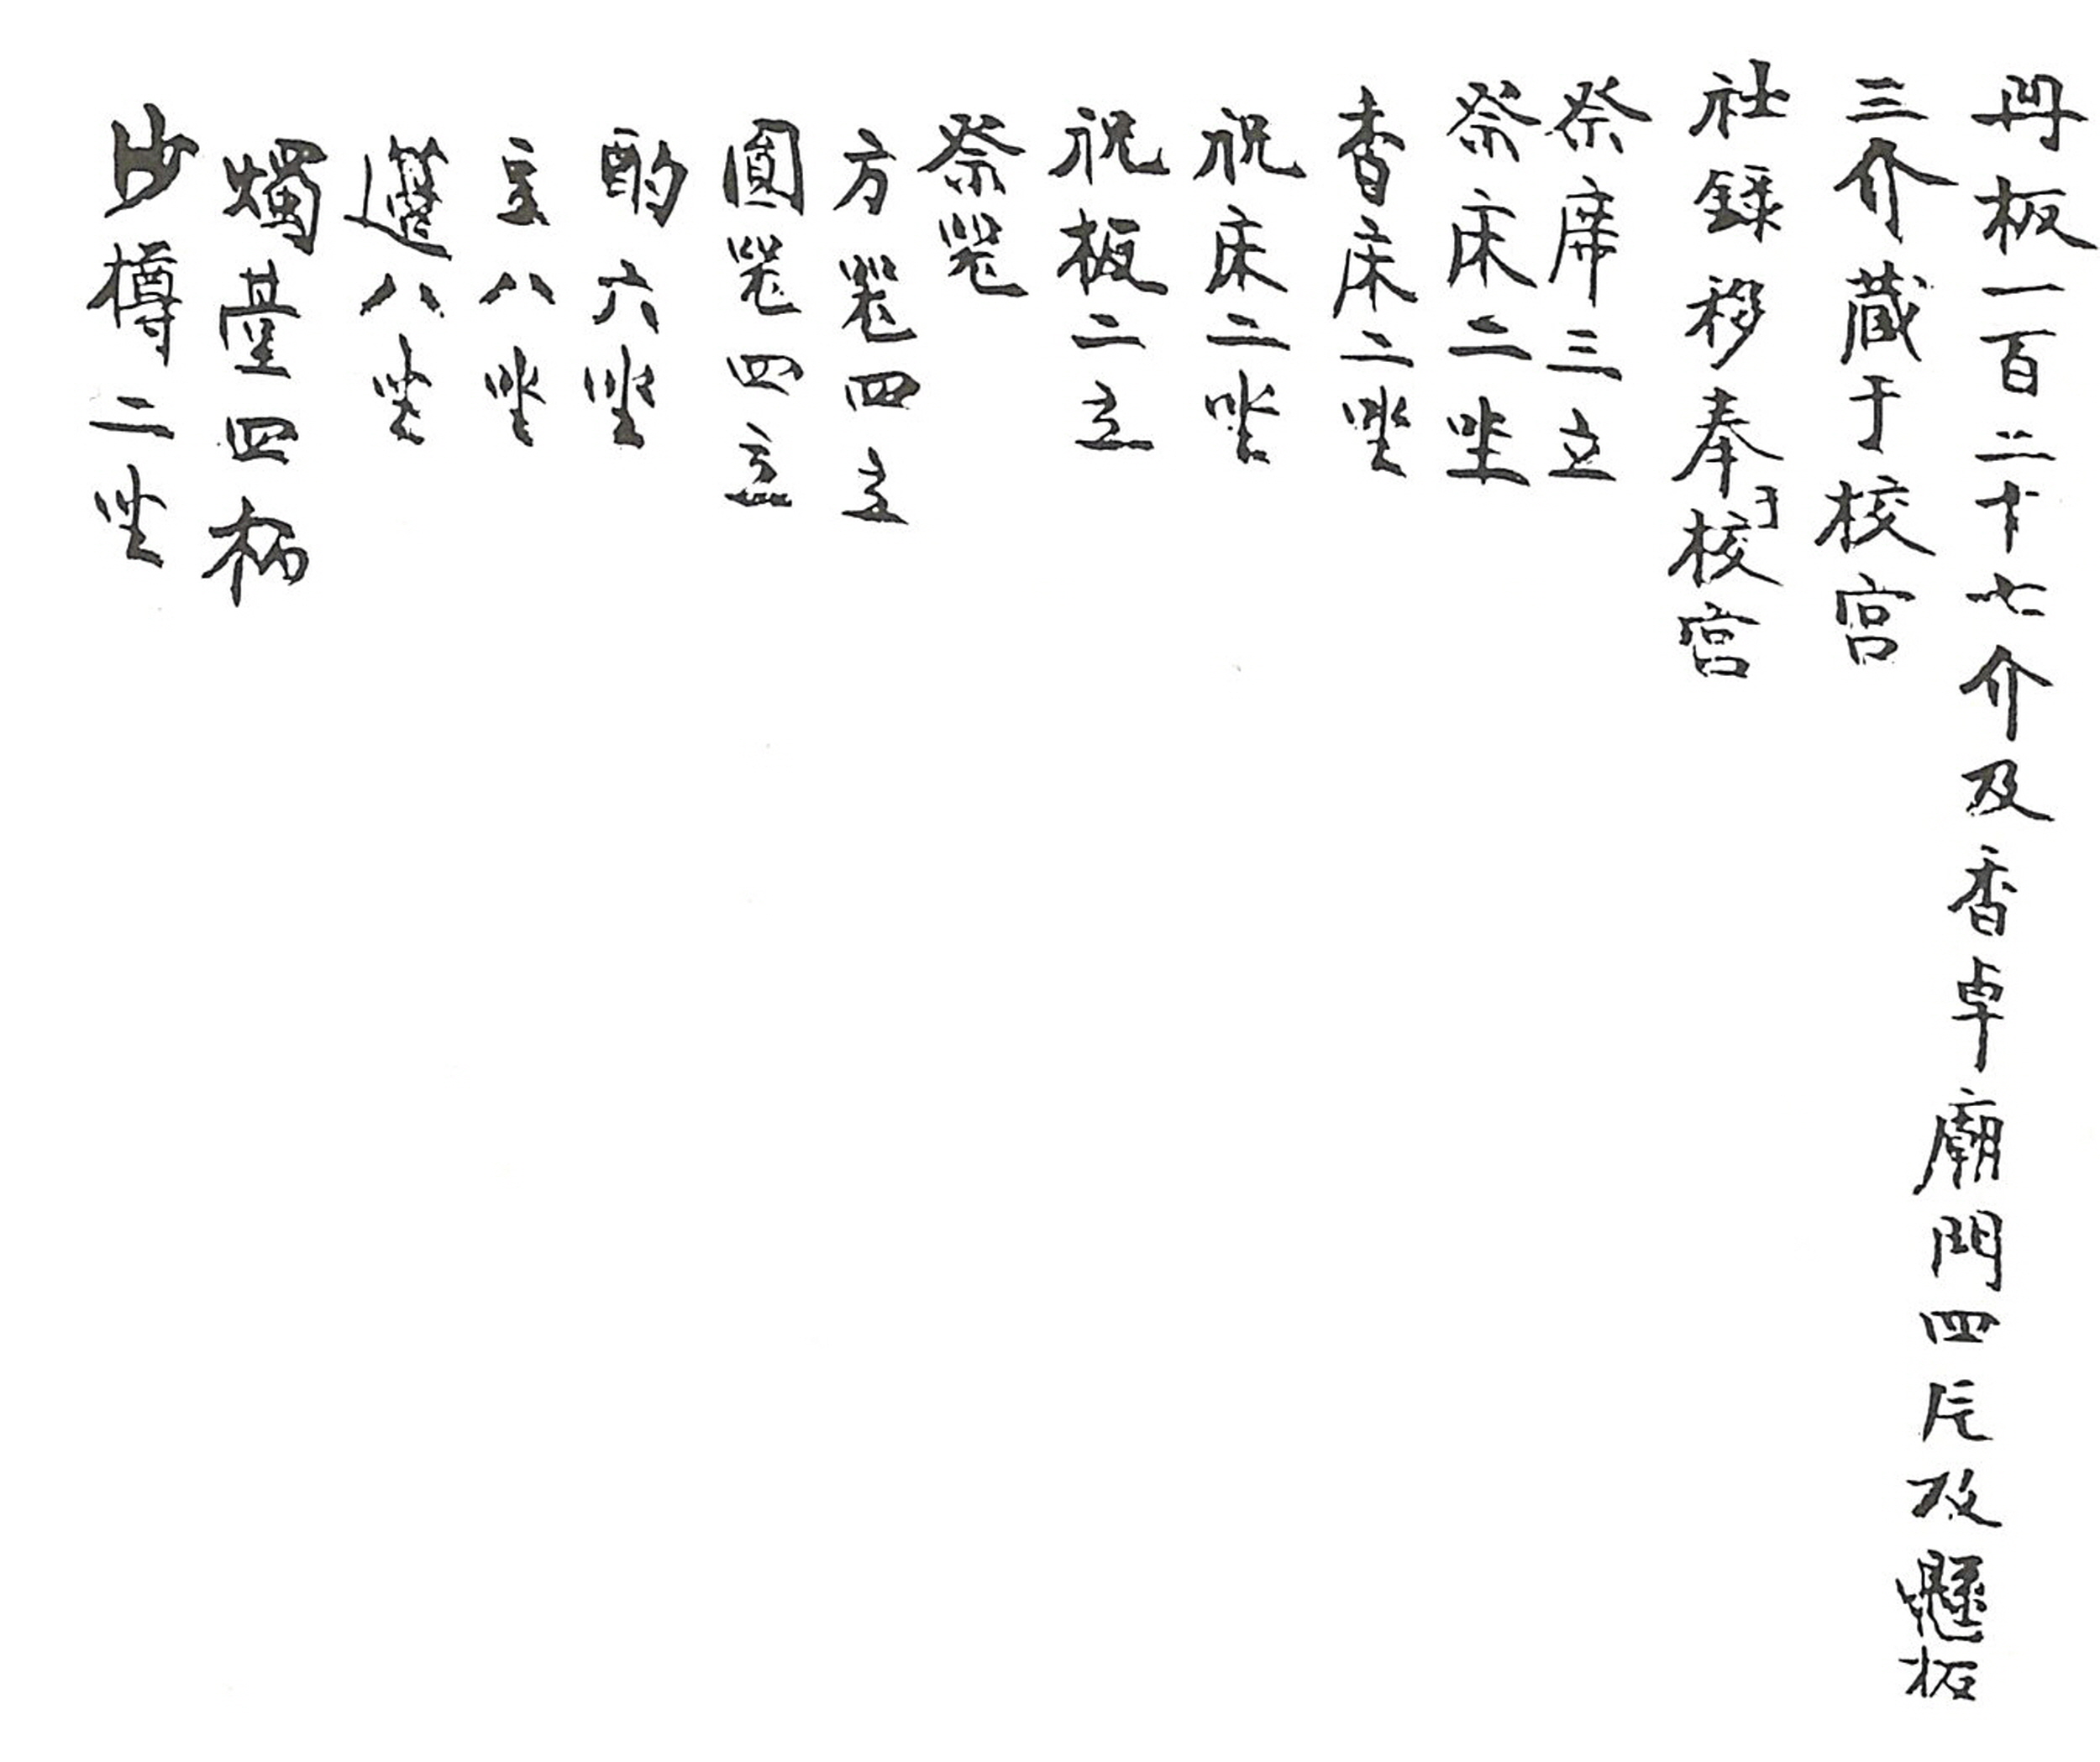 冊板一百二十七介及香卓廟門四尺及懸板
三介藏于校宮
社錄移奉于校宮
祭席三立
祭床二坐
香床二坐
祝床二坐
祝板二立
祭罢
方罢四立
圓罢四立
酌六坐
豆八坐
籩八坐
燭臺四柄
沙樽二坐